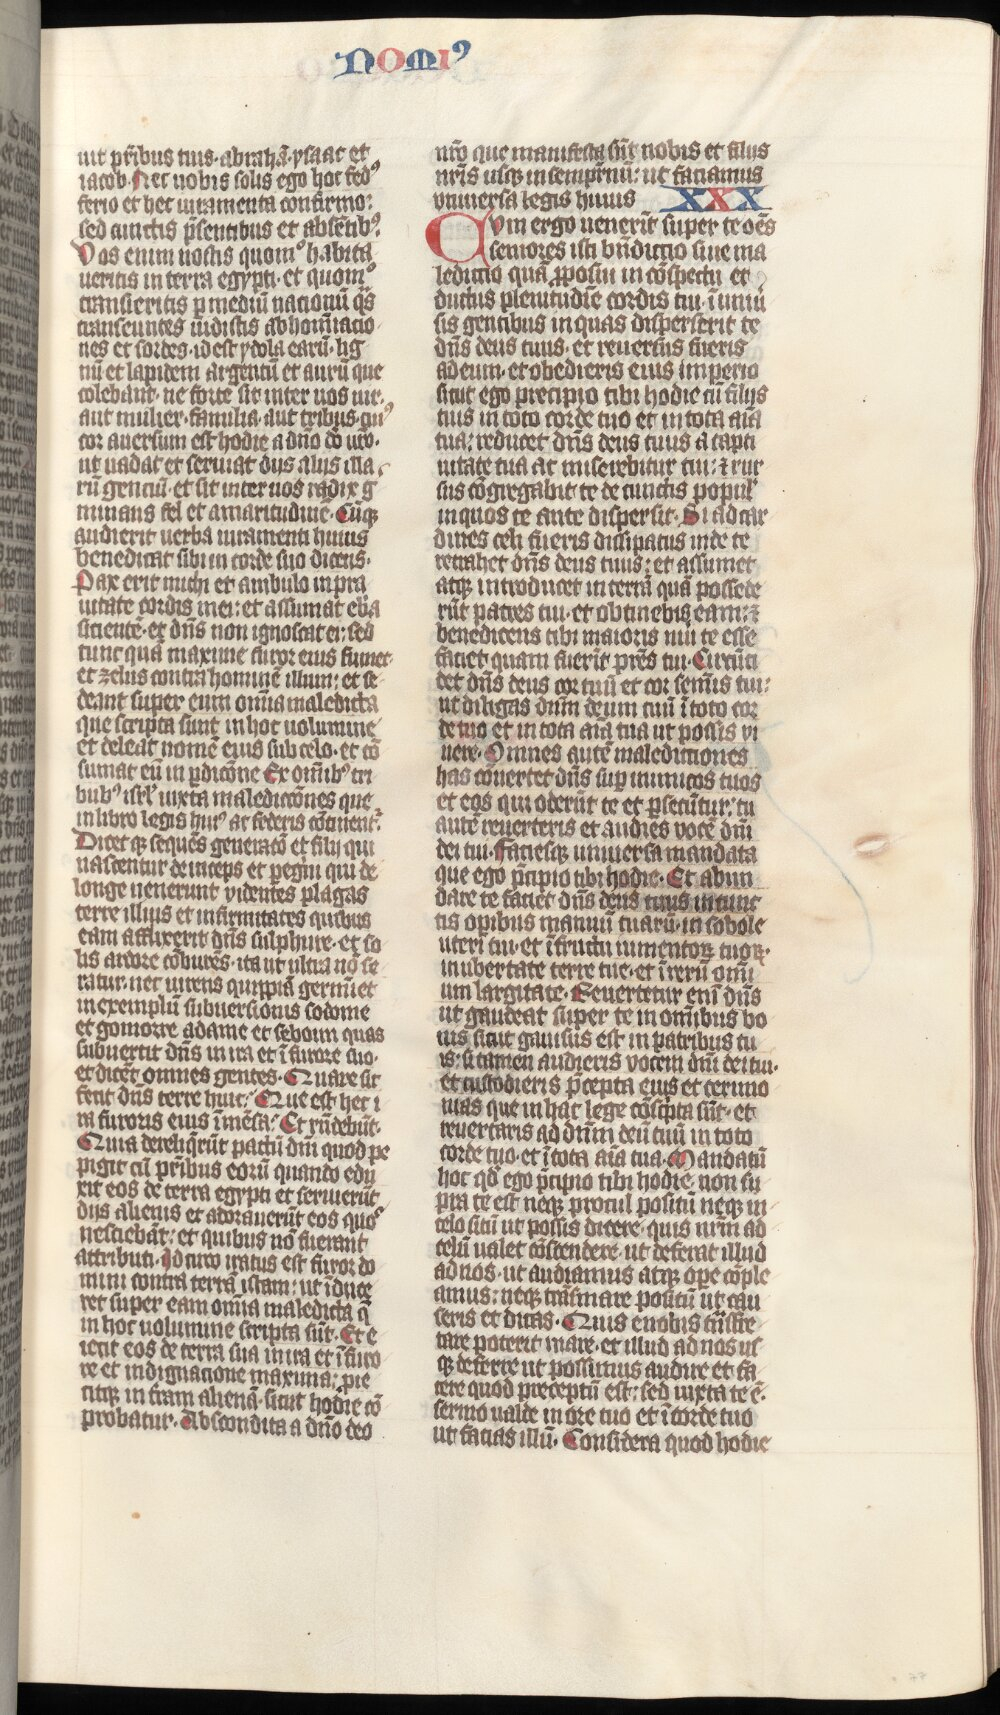 nomiꝰ
uit pr̄ibus tuis· abrahā· ysaac et
iacob· Nec uobis solis ego hoc fedꝰ
ferio et hec iuramenta confirmo:
sed cunctis p̄sentibus et absētibꝰ·
Vos enim nostis quomº habita
ueritis in terra egypti· et quomº
transieritis p mediū nationū q̄s
transeuntes uidistis abhoīatio
nes et sordes· id est ydola earū· lig
nū et lapidem argentū et aurū que
colebant· ne forte sit inter uos uir·
aut mulier· familia· aut tribus· cuiꝰ
cor auersum est hodie a dno do
ut uadat et seruiat diis aliis illa
rū gentiū· et sit inter uos radix g
minans fel et amaritudinē· Cūqꝫ
audierit uerba iuramenti huius
benedicat sibi in corde suo dicens·
Pax erit michi et ambulo in pra
uitate cordis mei: et assumat ebͥa
sitientē· et dn̄s non ignoscat ei: sed
tunc quā maxime furor eius fumet·
et zelus contra hominē illum: et se
deant super eum omīa maledicta
que scripta sunt in hoc uolumine
et deleat nomē eius sub celo· et cō
sumat eū in pdicōne Ex omībꝰ tri
bubꝰ isrl̄ iuxta maledictōnes que
in libro legis huiꝰ ac federis cōtinent̄·
Dicet qꝫ sequēs generatō et filii qui
nascentur deinceps et pegini qui de
longe uenerunt uidentes plagas
terre illius et infirmitates quibus
eam afflixerit dn̄s sulphure· et so
lis ardore cōburēs· ita ut ultra nō se
ratur· nec uirens quippiā germīet
in exemplū subuersionis sodome
et gomorre adame et seboim quas
subuertit dn̄s in ira et ī furore suo·
et dicēt omnes gentes· Quare sic
fecit dn̄s terre huic: Que est hec i
ra furoris eius īmēsa: Et rn̄debūt·
Quia dereliq̄rūt pactū dn̄i quod pe
pigit cū pr̄ibus eorū quando edu
xit eos de terra egypti et seruierūt
diis alienis et adorauerūt eos quoˢ
nesciebāt: et quibus nō fuerant
attributi· Idcirco iratus est furor do
mini contra terrā istam: ut īduce
ret super eam omīa maledicta q̄
in hoc uolumine scripta sūt· Et e
iecit eos de terra sua in ira et ī furo
re et indignacione maxima: pie
citqꝫ in t̄ram alienā· sicut hodie cō
probatur· Abscondita a dn̄o deo
nr̄o que manifesta sūt nobis et filiis
nr̄is usqꝫ in sempitnū: ut faciamus
vniuersa legis huius XXX
Cvm ergo uenerīt super te oēs
sermones isti bn̄dictio siue ma
ledictio quā ꝓposui in cōspectu et
ductus plenitudīe cordis tui· ī uniū
sis gentibus in quas disperserit te
dn̄s deus tuus· et reuersus fueris
ad eum· et obedieris eius imperio
sicut ego precipio tibi hodie cū filiis
tuis in toto corde tuo et in tota aīa
tua: reducet dn̄s deus tuus a capti
uitate tua ac miserebitur tui: ⁊ rur
sus cōgregabit te de cunctis popul'
in quos te ante dispersit· Si ad car
dines celi fueris dissipatus inde te
retrahet dn̄s deus tuus: et assumet
atqꝫ introducet in terrā quā possede
rūt patres tui· et obtinebis eam: ⁊
benedicens tibi maioris nūi te esse
faciet quam fuerīt pr̄es tui· Circūci
det dn̄s deus cor tuū et cor semīs tui:
ut diligas dn̄m deum tuū ī toto cor
de tuo et in tota aīa tua ut possis vi
uere· Omnes autē maledictiones
has cōuertet dn̄s sup̄ inimicos tuos
et eos qui oderūt te et psecūtur: tu
autē reuerteris et audies vocē dn̄i
dei tui· Faciesqꝫ uniuersa mandata
que ego p̄cipio tibi hodie· Et abun
dare te faciet dn̄s deus tuus in cunc
tis opibus manuū tuarū· in sobole
uteri tui· et ī fructu iumentoꝝ tuoꝝ·
in ubertate terre tue· et ī rerū omī
um largitate· Reuertetur enī dn̄s
ut gaudeat super te in omībus bo
nis sicut gauisus est in patribus tu
is: si tamen audieris vocem dn̄i dei tui·
et custodieris p̄cepta eius et cerimo
nias que in hac lege cōscpta sūt· et
reuertaris ad dn̄m deū tuū in toto
corde tuo· et ī tota aīa tua· Mandatū
hoc qd̄ ego p̄cipio tibi hodie· non su
pra te est neqꝫ procul positū neqꝫ in
celo sitū ut possis dicere· quis nr̄m ad
celū ualet cōscendere· ut deferat illud
ad nos· ut audiamus atqꝫ ope cōple
amus: neqꝫ trās mare positū ut cau
seris et dicas· Quis e nobis trāsfre
tare poterit mare· et illud ad nos us
qꝫ deferre ut possimus audire et fa
cere quod preceptū est: sed iuxta te ē·
sermo ualde in ore tuo et ī corde tuo
ut facias illū· Considera quod hodie
77